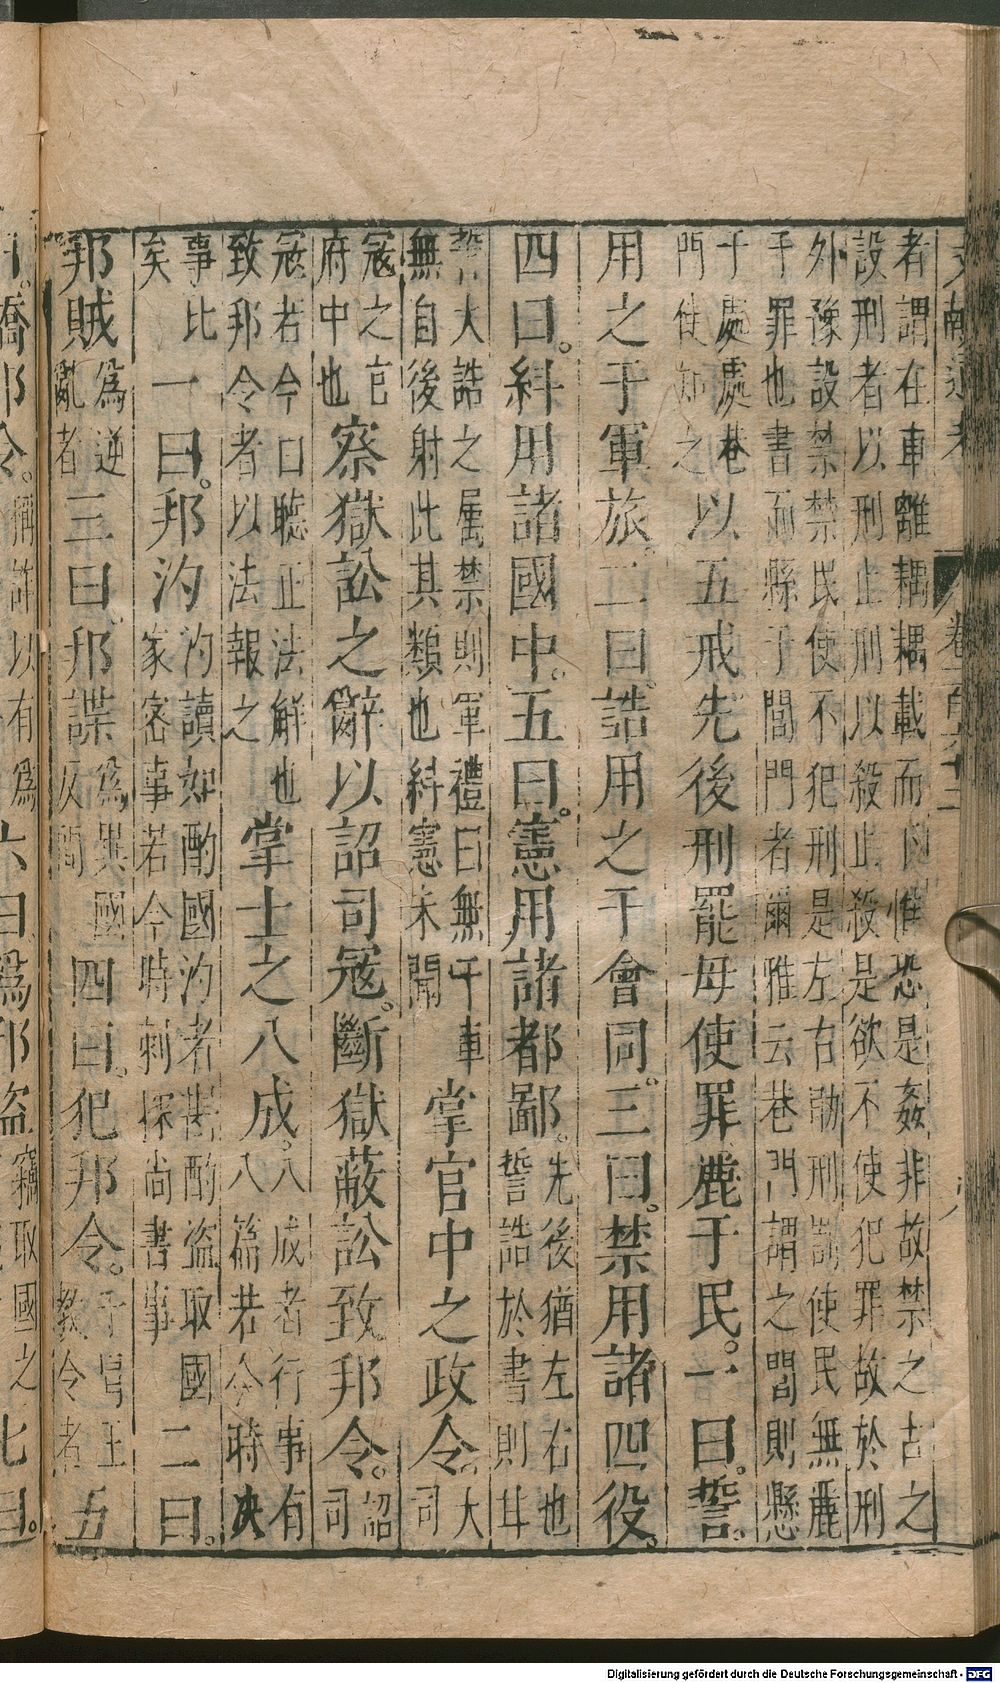 文獻通考 卷一百六十二 八
者謂在車離耦耦載而下帷恐是姦非故禁之古之
設刑者以刑止刑以殺止殺是欲不使犯罪故於刑
外豫設禁禁民使不犯刑是左右助刑罰使民無麗
于罪也書而縣于閭門者爾雅云巷門謂之閭則懸
于處處巷門使知之以五戒先後刑罷毋使罪麗于民。一曰。誓。
用之于軍旅。二曰。誥用之于會同。三曰。禁用諸四役。
四曰。糾用諸國中。五曰。憲用諸都鄙。先後猶左右也誓誥於書則甘
誓大誥之屬禁則軍禮曰無干車無自後射此其類也糾憲未聞掌官中之政令。大司
寇之官府中也察獄訟之辭以詔司寇。斷獄蔽訟致邦令。詔司
寇若今口聽正法解也致邦令者以法報之掌士之八成。八成者行事有八篇若今時决
事比矣一曰。邦汋汋讀如酌國汋者斟酌盜取國家密事若今時刺探尚書事二曰。
邦賊為逆亂者三曰。邦諜為異國反間四曰。犯邦令。干冒王教令者五
曰。撟邦令。稱詐以有為六曰為邦盜竊取國之七曰。
Digitalisierung gefördert durch die Deutsche Forschungsgemeinschaft - DFG